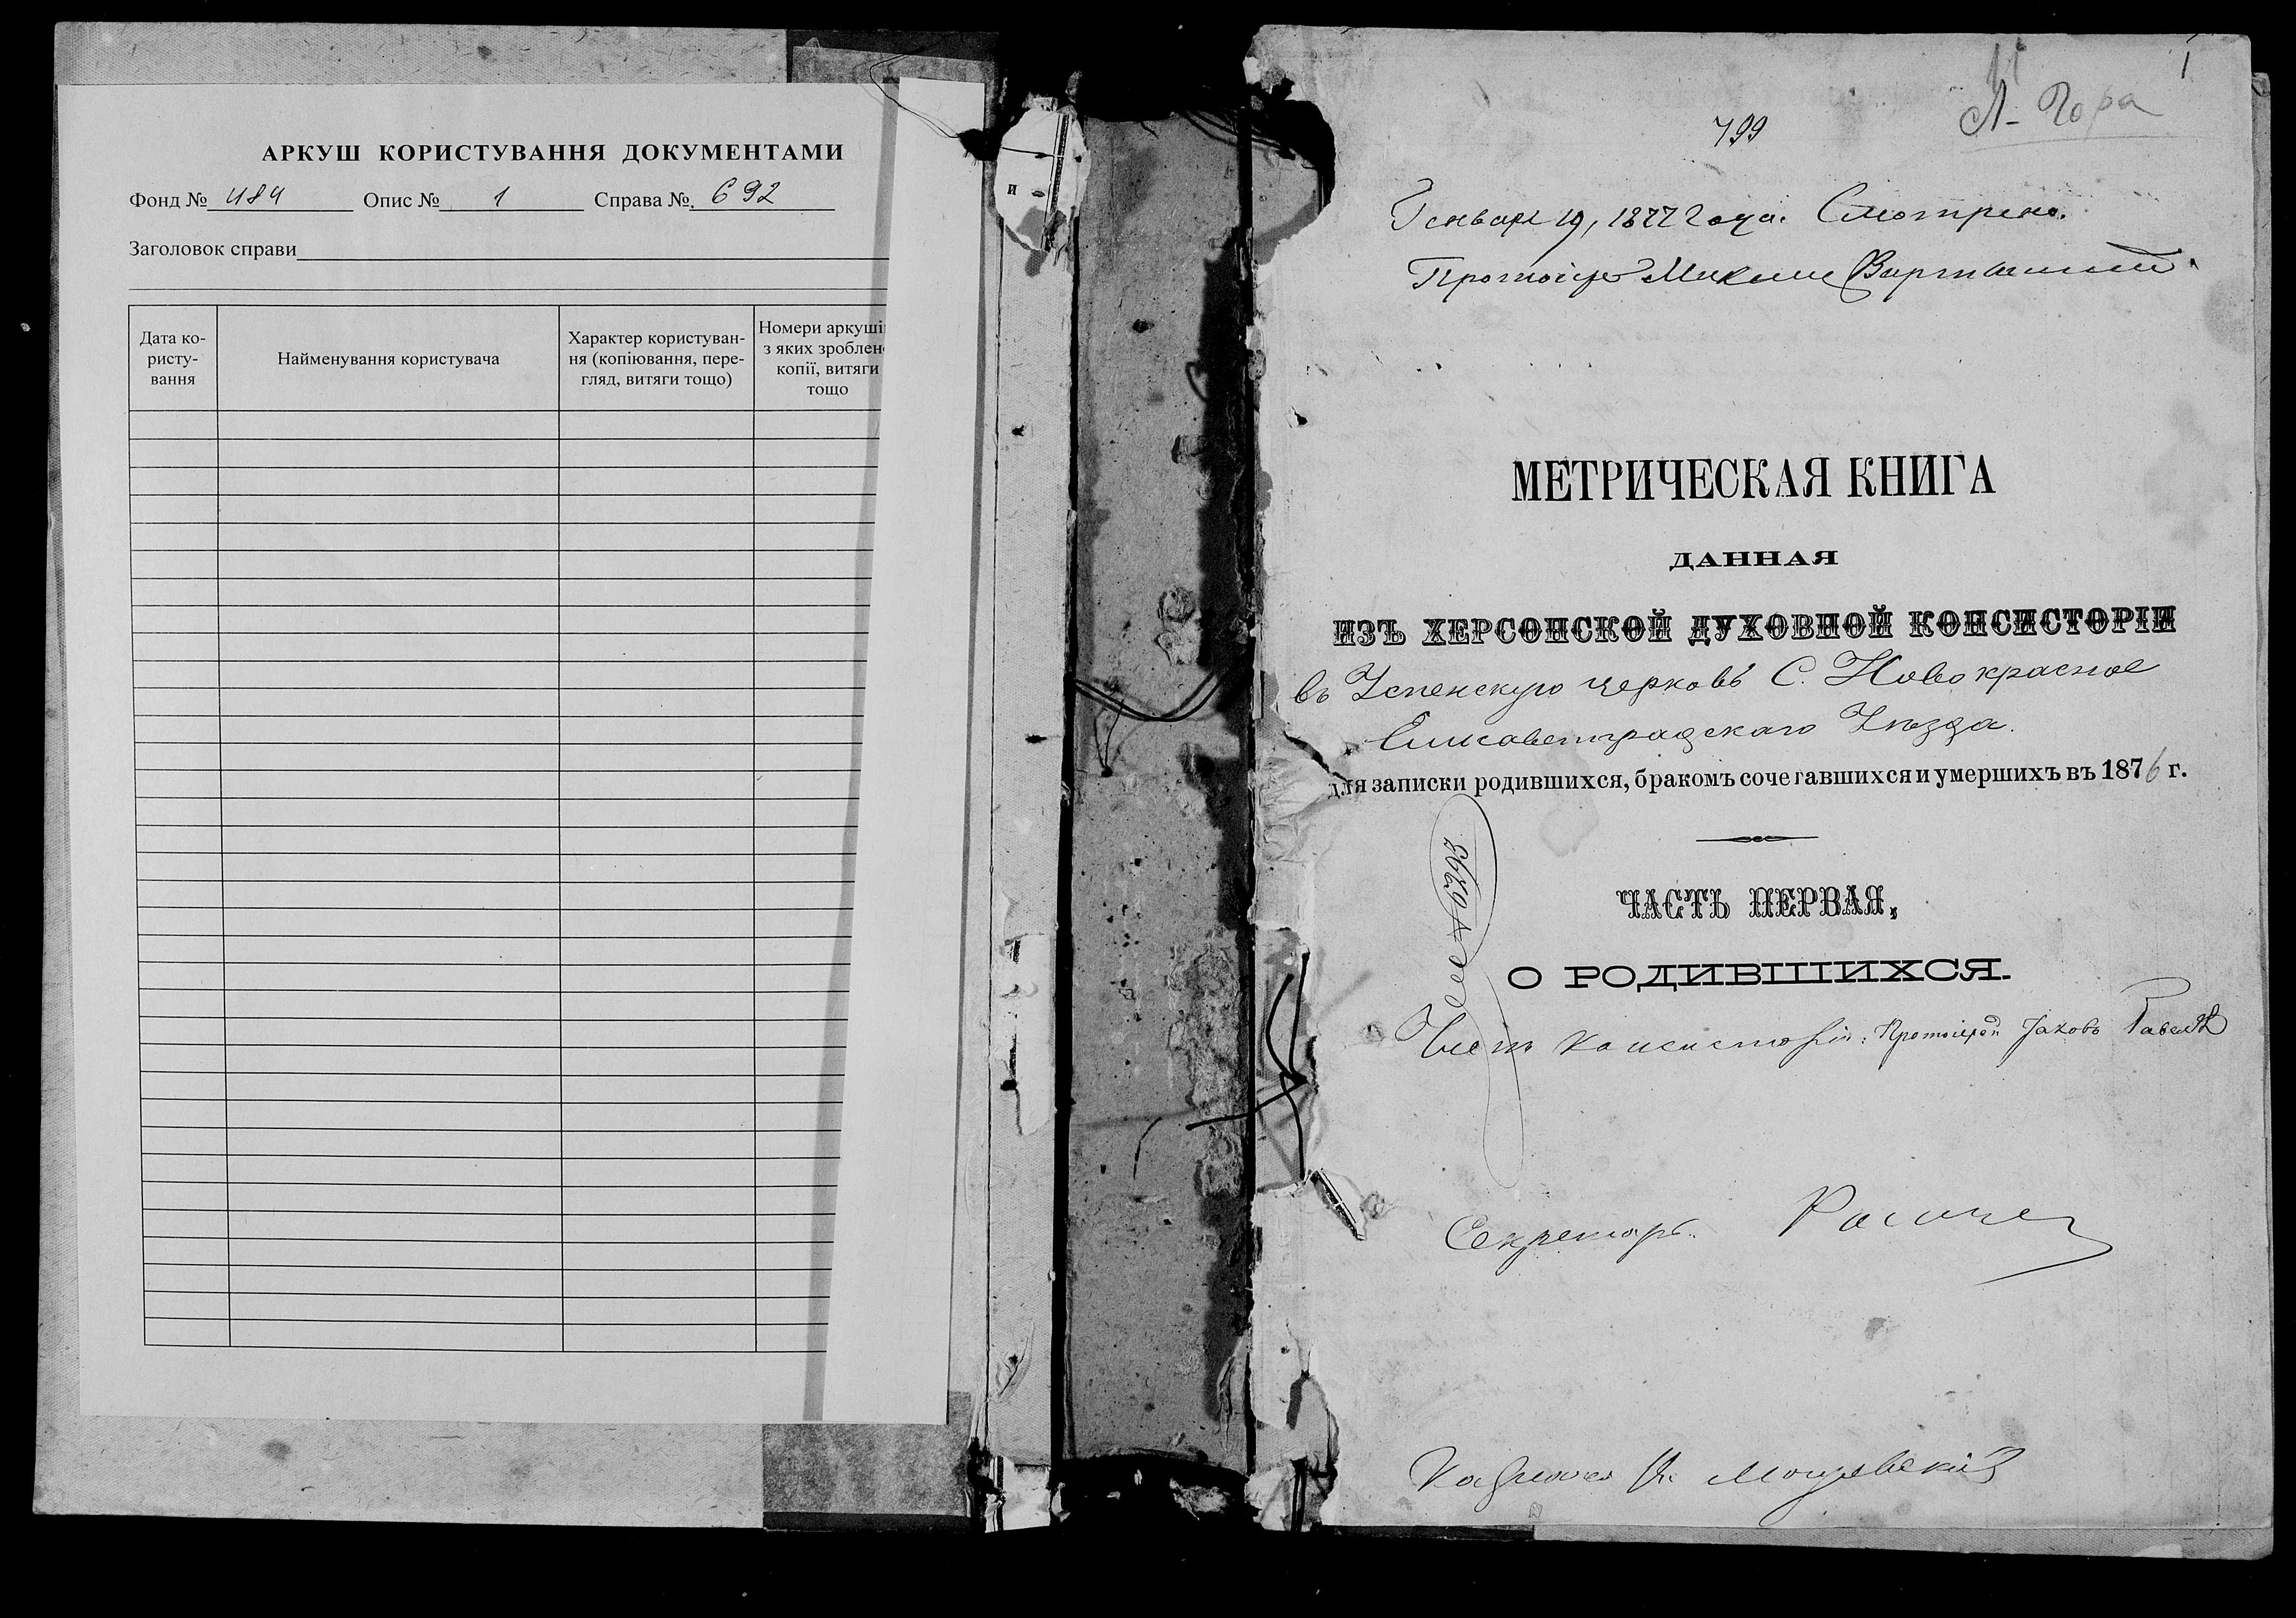 АРКУШ КОРИСТУВАННЯ ДОКУМЕНТАМИ
Фонд № 484 Опис № 1 Справа №. 692
Заголовок справи
Дата ко-
ристу-
вання
Найменування користувача
Характер користуван-
ня (копіювання, пере-
гляд, витяги тощо)
Номери аркуші
з яких зроблен
копії, витяги
тощо
и
1
Л-Гора
799
Генваря 19, 1877 года. Смотрено.
Протоіер Максим
МЕТРИЧЕСКАЯ КНИГА
ДАННАЯ
ИЗЪ ХЕРСОНСКОЙ ДУХОВНОЙ КОНСИСТОРІИ
въ Успенскую церковь С. Новокрасное
Елисаветградскаго Уѣзда.
для записки родившихся, бракомъ сочетавшихся и умершихъ въ 1876 г.
5293
ЧАСТЬ ПЕРВАЯ,
О РОДИВШИХСЯ.
Членъ Консисторіи: Протоіерей Іаковъ
Секретарь